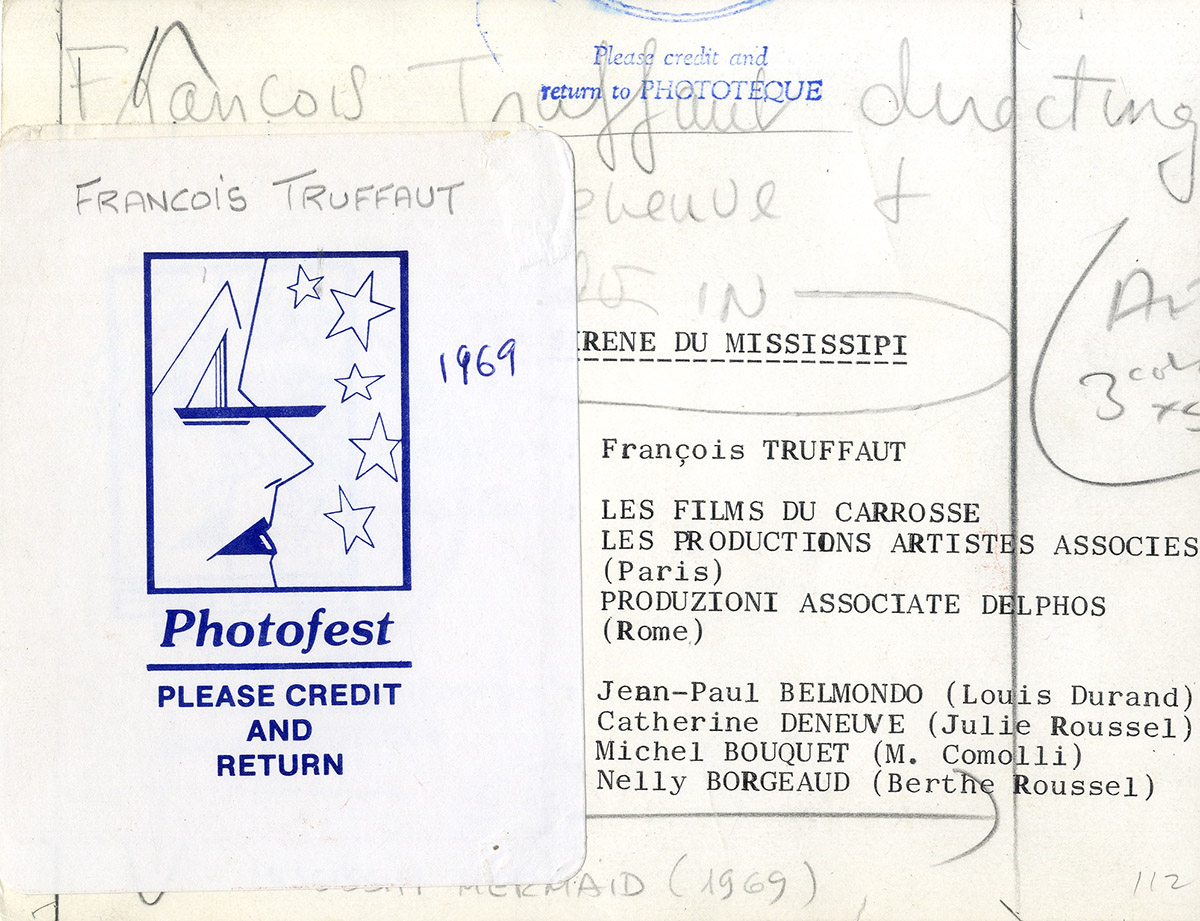 Please credit and
return to PHOTOTEQUE
Francois Truffaut directing
FRANCOIS TRUFFAUT
eneuve +
IN
1969
IRENE DU MISSISSIPI
3 col
François TRUFFAUT
LES FILMS DU CARROSSE
LES PRODUCTIONS ARTISTES ASSOCIES
(Paris)
PRODUZIONI ASSOCIATE DELPHOS
(Rome)
Photofest
PLEASE CREDIT
AND
RETURN
Jean-Paul BELMONDO (Louis Durand)
Catherine DENEUVE (Julie Roussel)
Michel BOUQUET (M. Comolli)
Nelly BORGEAUD (Berthe Roussel)
MERMAID (1969)
112